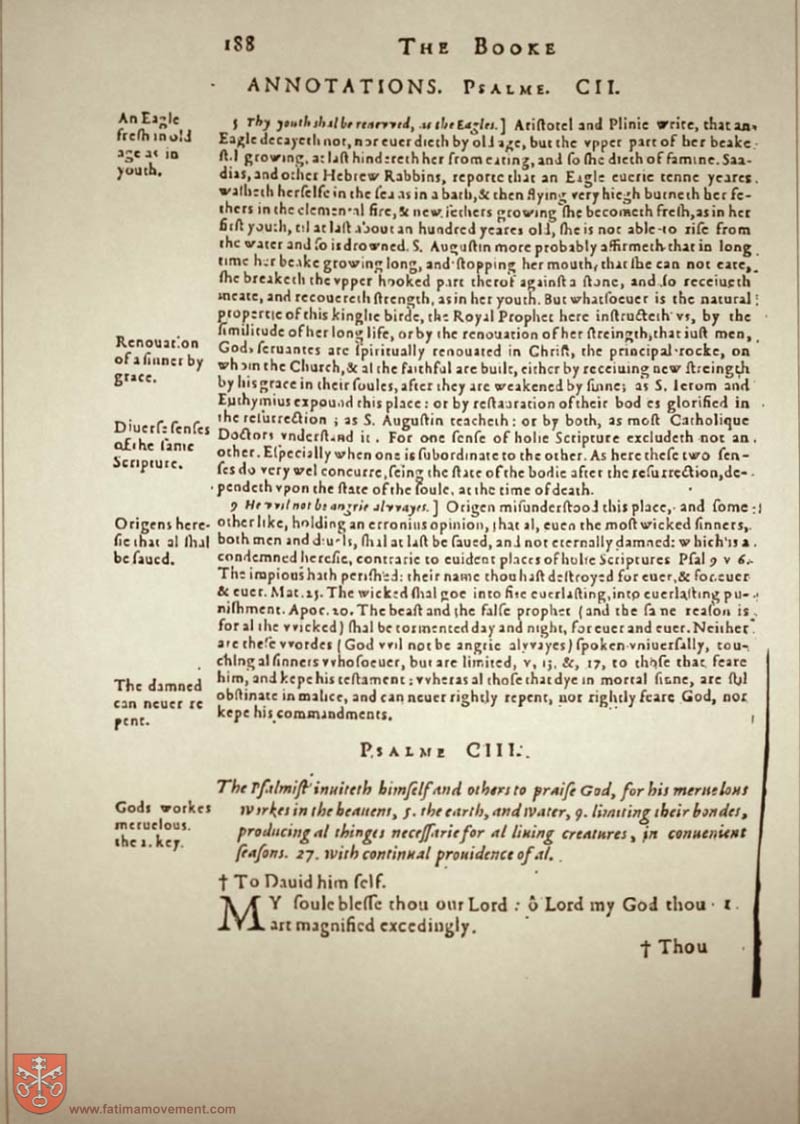 188 THE BOOKE
ANNOTATIONS. PSALME. CII.
An Eagle
fresh in old
age as in
youth.
5 Thy youth shal be renevved, as the Eagles.] Aristotel and Plinie write, that an
Eagle decayeth not, nor euer dieth by old age, but the vpper part of her beake
stil growing, at last hindereth her from eating, and so she dieth of famine. Saa-
dias, and other Hebrew Rabbins, reporte that an Eagle euerie tenne yeares
washeth herselfe in the sea as in a bath, & then flying very hiegh burneth her fe-
thers in the elemental fire, & new fethers growing she becometh fresh, as in her
first youth, til at last about an hundred yeares old, she is not able to rise from
the water and so is drowned. S. Augustin more probably affirmeth that in long
time her beake growing long, and stopping her mouth, that she can not eate,
she breaketh the vpper hooked part therof against a stone, and so receiueth
meate, and recouereth strength, as in her youth. But whatsoeuer is the natural
propertie of this kinglie birde, the Royal Prophet here instructeth vs, by the
similitude of her long life, or by the renouation of her streingth, that iust men,
Renouation
of a sinner by
grace.
Gods seruantes are spiritually renouated in Christ, the principal rocke, on
whom the Church, & al the faithful are built, either by receiuing new streingth
by his grace in their soules, after they are weakened by sinne; as S. Ierom and
Euthymius expound this place: or by restauration of their bodies glorified in
Diuerse senses
of the same
Scripture.
the resurrection; as S. Augustin teacheth: or by both, as most Catholique
Doctors vnderstand it. For one sense of holie Scripture excludeth not an
other. Especially when one is subordinate to the other. As here these two sen-
ses do very wel concurre, seing the state of the bodie after the resurrection, de-
pendeth vpon the state of the soule, at the time of death.
Origens here-
sie that al shal
be saued.
9 He vvil not be angrie alvvayes.] Origen misunderstood this place, and some
other like, holding an erronius opinion, that al, euen the most wicked sinners,
both men and diuels, shal at last be saued, and not eternally damned: which is a
condemned heresie, contrarie to euident places of holie Scriptures Psal 9 v 6.
The impious hath perished: their name thou hast destroyed for euer, & for euer
& euer. Mat. 25. The wicked shal goe into fire euerlasting, into euerlasting pu-
nishment. Apoc. 20. The beast and the false prophet (and the same reason is
for al the vvicked) shal be tormented day and night, for euer and euer. Neither
are these vvordes (God vvil not be angrie alvvayes) spoken vniuersally, tou-
ching al sinners vvhosoeuer, but are limited, v, 13, &, 17, to those that feare
The damned
can neuer re
pent.
him, and kepe his testament: vvheras al those that dye in mortal sinne, are stil
obstinate in malice, and can neuer rightly repent, nor rightly feare God, nor
kepe his commandments.
PSALME CIII.
Gods workes
meruelous.
the 2. key.
The Psalmist inuiteth himself and others to praise God, for his meruelous
workes in the heauens, 5. the earth, and water, 9. limiting their bondes,
producing al thinges necessarie for al liuing creatures, in conuenient
seasons. 27. with continual prouidence of al.
† To Dauid him self.
MY soule blesse thou our Lord: ô Lord my God thou 1
art magnified excedingly.
† Thou
www.fatimamovement.com